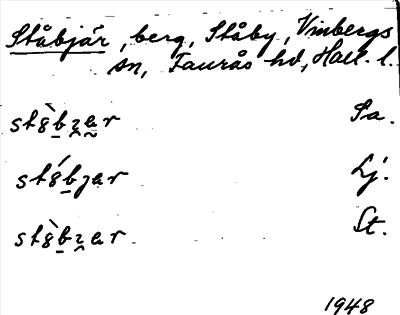 Ståbjär, berg, Ståby, Vinbergs
sn, Faurås hd, Hall. l.
st8̀b̲z̰a̰r Sa.
st8́b̲jar Lj.
st8̀b̲z̰ar St.
1948